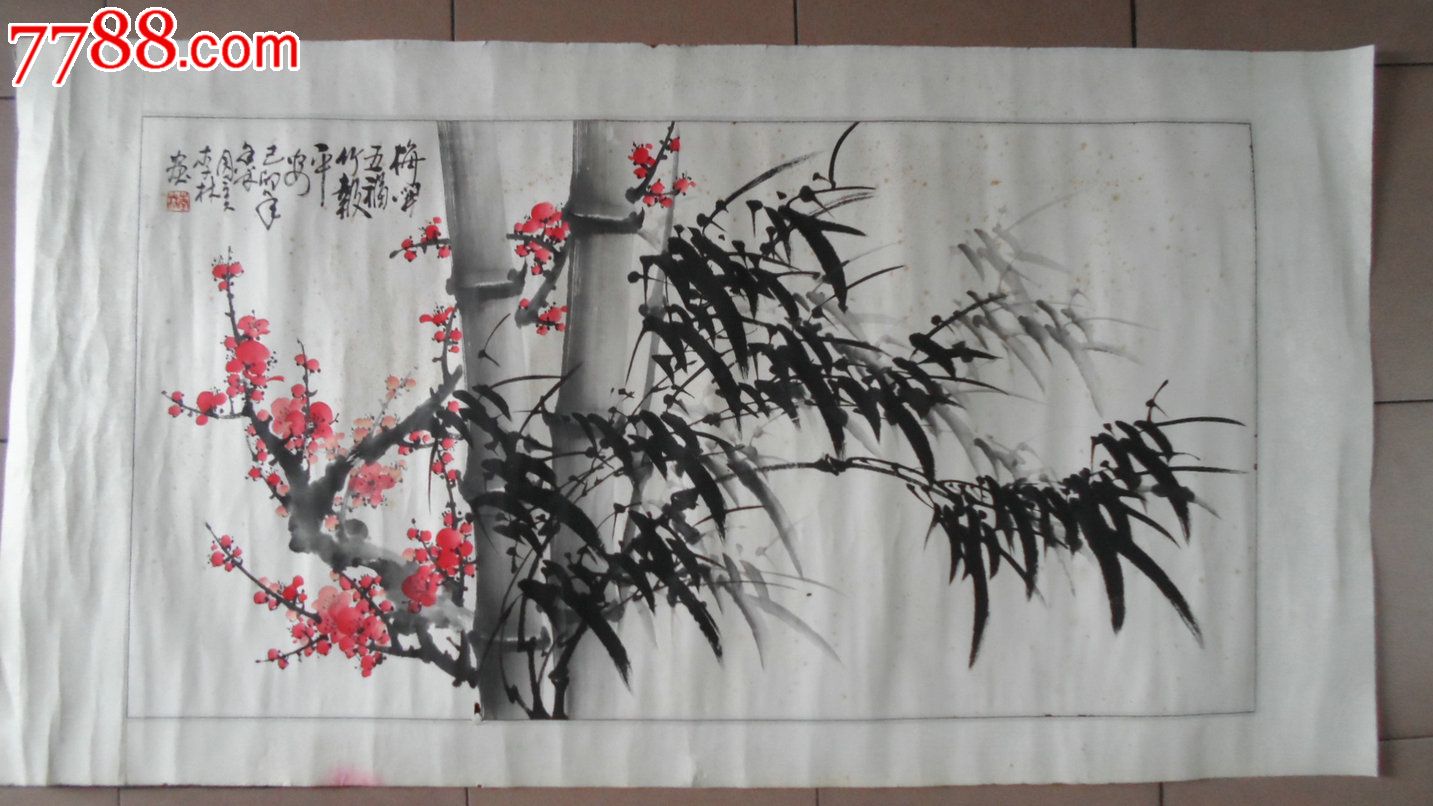 7788.com
梅開
五福
竹報
平
安
己卯年
李林
画